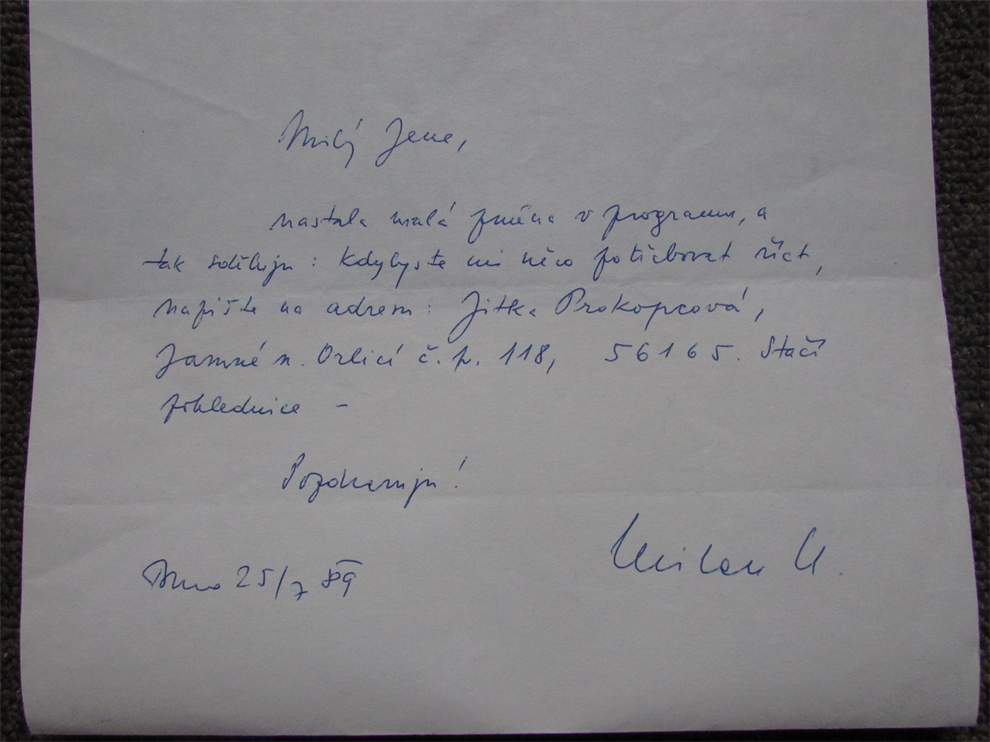 Milý Jene,
nastala malá změna v programu, a
tak sděluji: Kdybyste mi něco potřeboval říct,
napište na adresu: Jitka Prokopcová,
Jamné n. Orlicí č.p. 118, 56165. Stačí
pohlednice –
Pozdravuju!
Brno 25/7 89
Milan U.